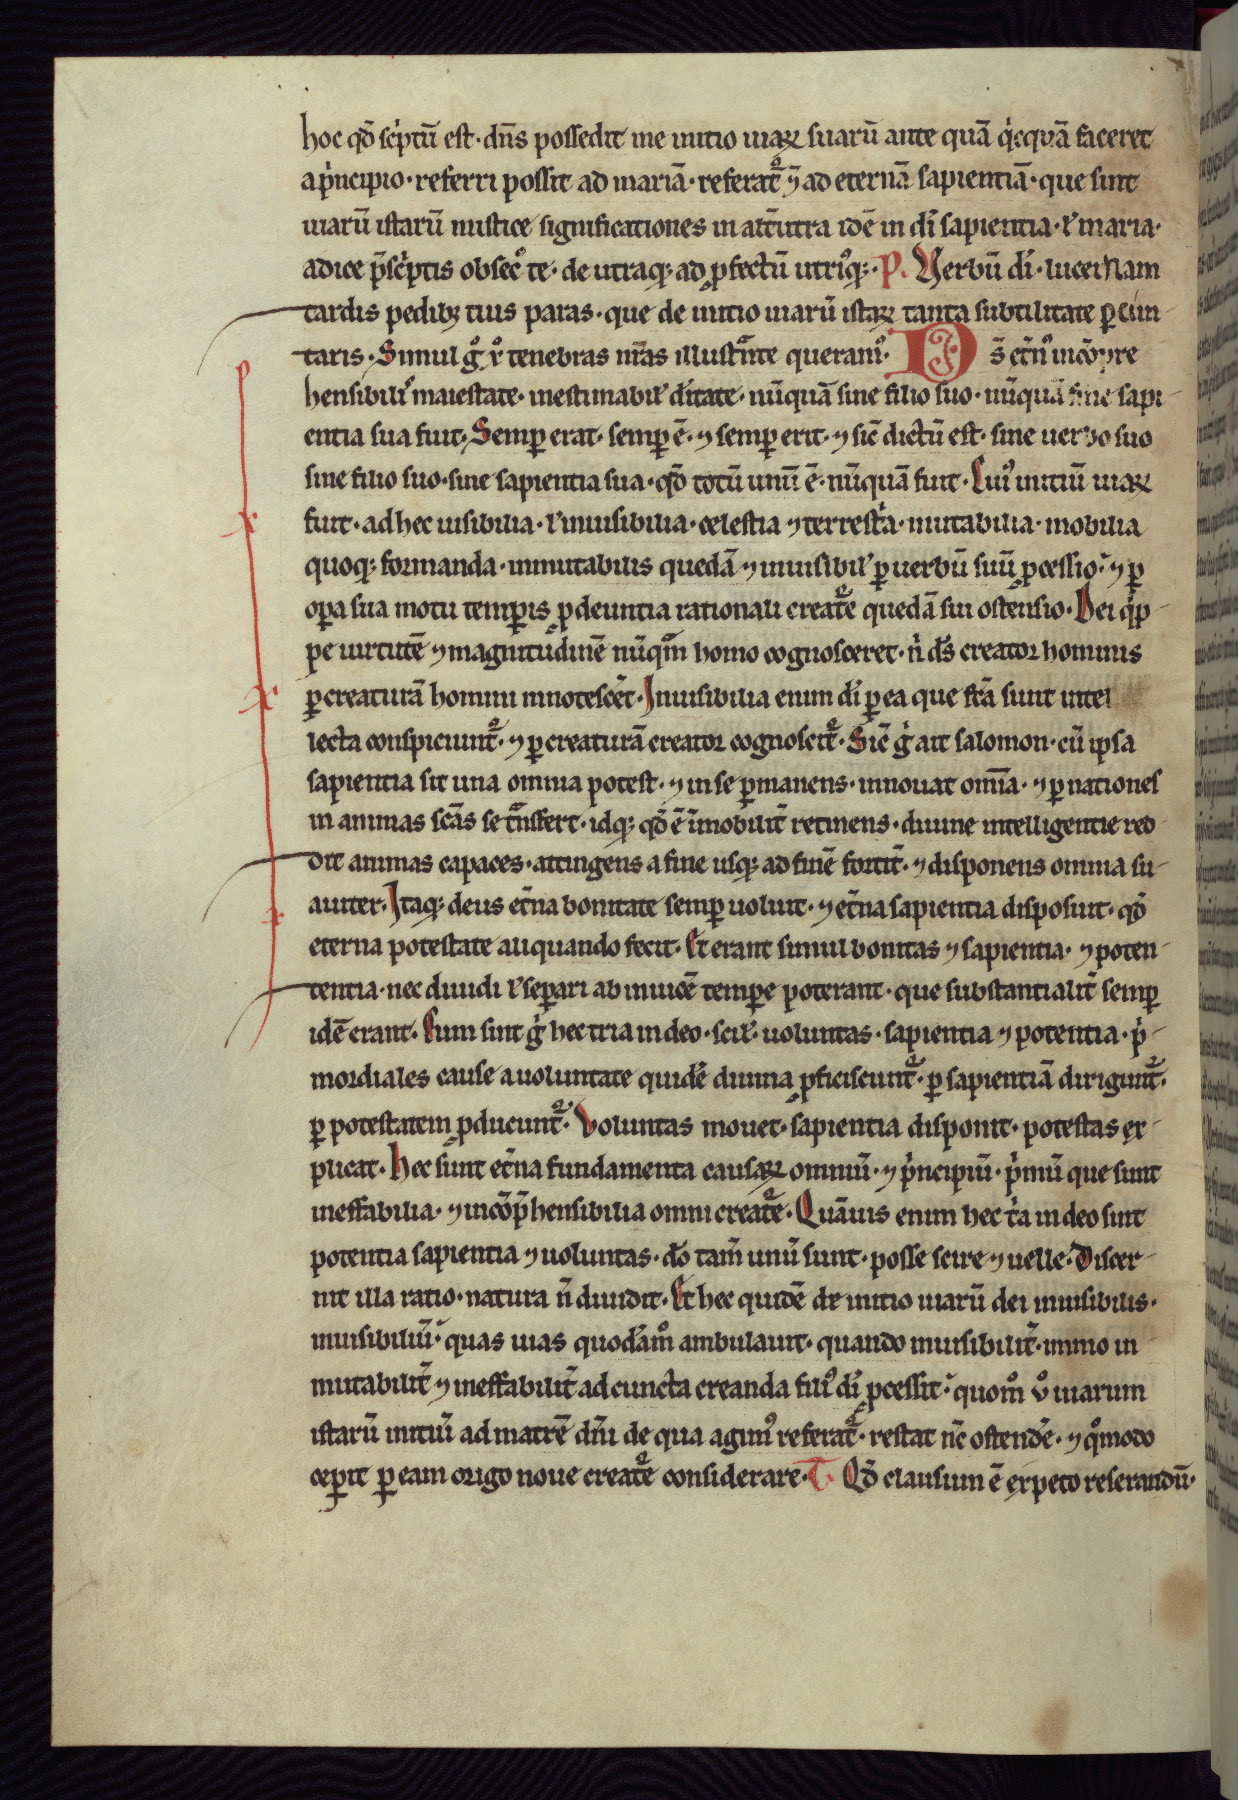 hoc qđ sc̓ptū est · dn̄s possedit me initio uiaꝝ suarū ante quā q̓cquā faceret
a p̓ncipio · referri possit ad mariā · referat᷑ ⁊ ad eternā sapientiā · que sint
uiarū istarū mistice significationes in alt̄utra idē in dī sapientia · ł maria ·
adice p̄sc̓ptis obsec̊ te · de utraq; ad ꝓfectū utriꝰq; · P. Verbū dī · lucernam
tardis pedibꝫ tuis paras · que de initio uiarū istaꝝ tanta subtilitate ꝑcun-
taris · Simul g̊ ⁊ tenebras nr̄as illustͣnte queramꝰ · Ds̄ et̄nꝰ incōpre
hensibilis maiestate · inestimabił ditate · nūquā sine filio suo · nūquā sine sapi-
entia sua fuit · Semꝑ erat · semꝑ ē · ⁊ semꝑ erit · ⁊ sic̄ dictū est · sine uerbo suo
sine filio suo · sine sapientia sua · qđ totū unū ē · nūquā fuit · Cuiꝰ initiū uiaꝝ
fuit · ad hec uisibilia · ł inuisibilia · celestia ⁊ terrest̓a · mutabilia · mobilia
quoq; formanda · inmutabilis quedā ⁊ inuisibił ꝑ uerbū suū ꝓcessio · ⁊ ꝑ
oꝑa sua motu temꝑis ꝓdeuntia rationali creat᷑e quedā sui ostensio · Dei q̓p-
pe uirtutē ⁊ magnitudinē nūqͣm homo cognosceret · n̓ ds̄ creator hominis
ꝑ creaturā homini innotesc̄et · Inuisibilia enim dī ꝑ ea que fc̄a sunt intel
lecta conspiciunt᷑ · ⁊ ꝑ creaturā creator cognoscit᷑ · Sic̄ g̓ ait salomon · cū ipsa
sapientia sit una omnia potest · ⁊ in se ꝑmanens · innouat om̄ia · ⁊ ꝑ nationes
in animas sc̄as se tͣnsfert · idq; qđ ē īmobilit̄ retinens · diuine intelligentie red-
dit animas capaces · attingens a fine usq; ad finē fortit̄ · ⁊ disponens omnia su-
auiter · Itaq; deus et̄na bonitate semꝑ uoluit · ⁊ et̄na sapientia disposuit · qđ
eterna potestate aliquando fecit · Et erant simul bonitas ⁊ sapientia · ⁊ poten-
tentia · nec diuidi ł seꝑari ab inuicē temꝑe poterant · que substantialit̄ semꝑ
idē erant · Cum sint g̓ hec tria in deo · scił · uoluntas · sapientia ⁊ potentia · p̓-
mordiales cause a uoluntate quidē diuina ꝓficiscunt᷑ · ꝑ sapientiā dirigunt᷑ ·
ꝑ potestatem ꝓducunt᷑ · Voluntas mouet · sapientia disponit · potestas ex-
plicat · Hec sunt et̄na fundamenta causaꝝ omniū · ⁊ p̓ncipiū · p̓mū que sunt
ineffabilia · ⁊ incōp̄hensibilia omni creat᷑e · Quāuis enim hec t̓a in deo sint
potentia sapientia ⁊ uoluntas · dō tam̄ unū sunt · posse scire ⁊ uelle · Discer-
nit illa ratio · natura n̄ diuidit · Et hec quidē de initio uiarū dei inuisibilis ·
inuisibiliū · quas uias quodāmͦ ambulauit · quando inuisibilit̄ · immo in
mutabilit̄ ⁊ ineffabilit̄ ad cuncta creanda filiꝰ dī ꝓcessit · quomͦ ů uiarum
istarū initiū ad matrē dn̄i de qua agimꝰ referat᷑ · restat nc̄ ostendē · ⁊ qͦmodo
cepit ꝑ eam origo noue creat᷑e considerare · T. Qđ clausum ē expeto reserandū ·